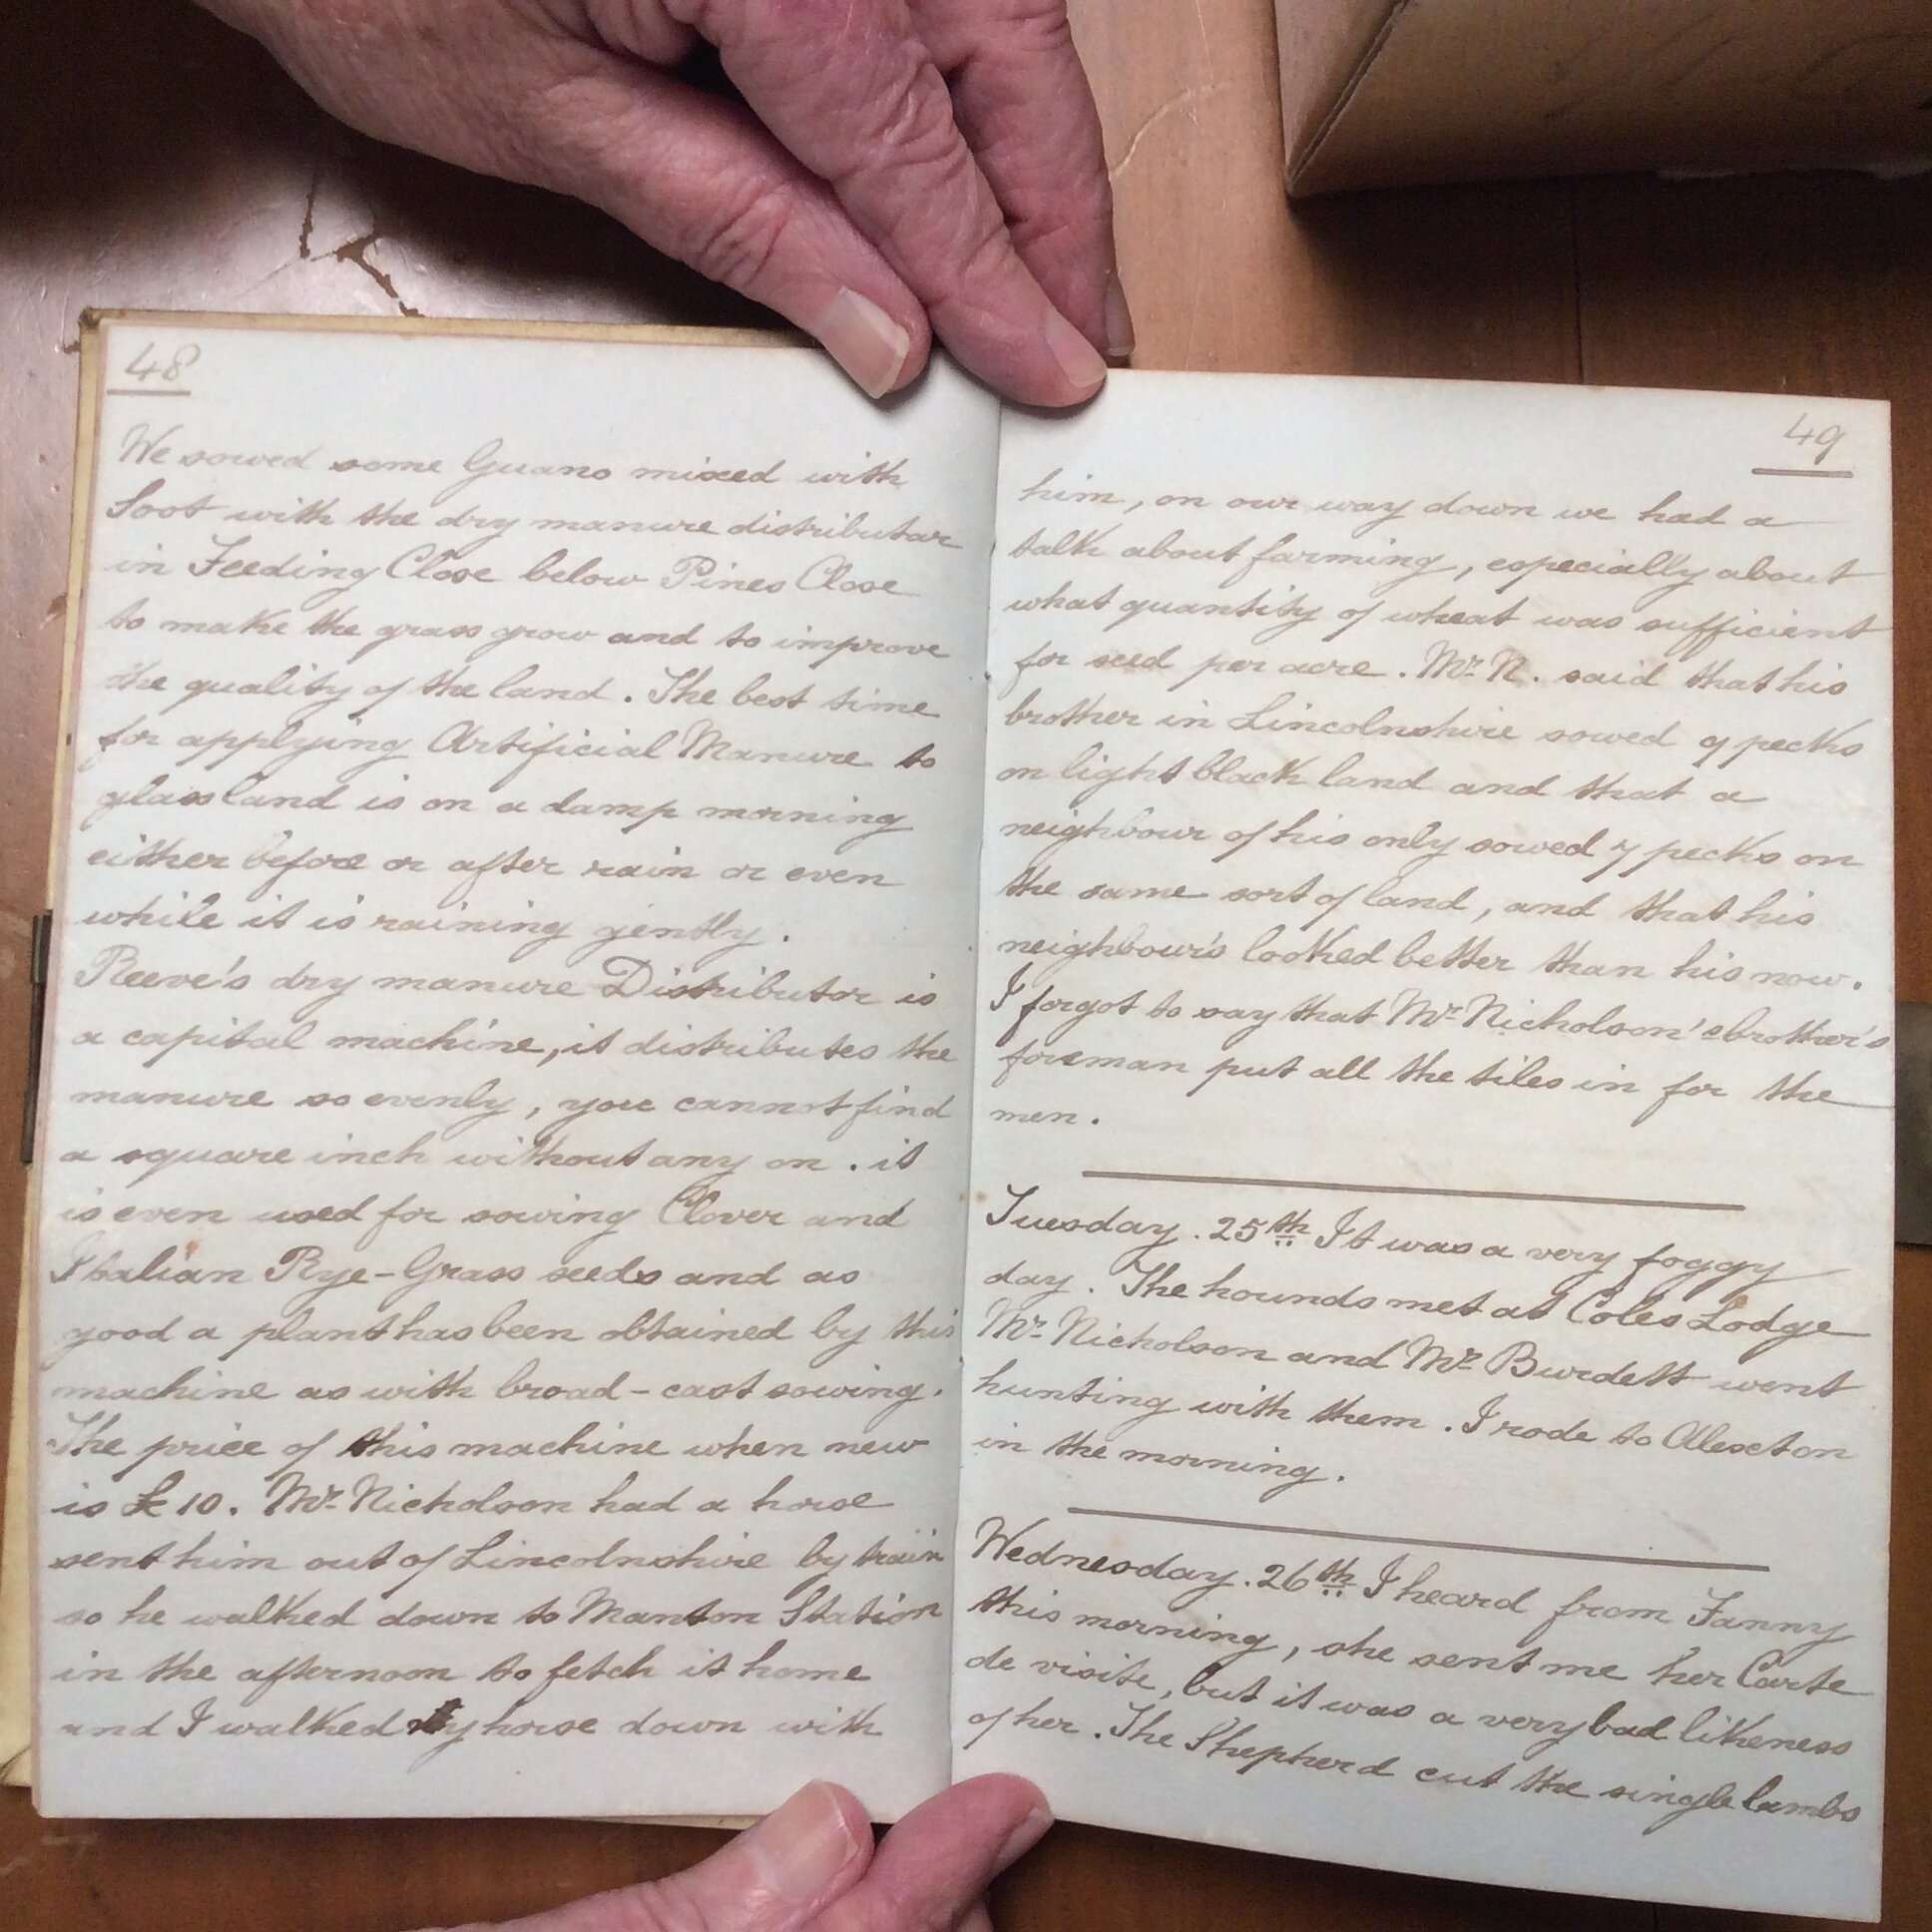 48
We sowed some Guano mixed with
Soot with the dry manure distributor
in Feeding Close below Pines Close
to make the grass grow and to improve
the quality of the land. The best time
for applying Artificial Manure to
glass land is on a damp morning
either before or after rain or even
while it is raining gently.
Reeve's dry manure Distributor is
a capital machine, it distributes the
manure so evenly, you cannot find
a square inch without any on. it
is even used for sowing Clover and
Italian Rye-Grass seeds and as
good a plant has been obtained by this
machine as with broad-cast sowing.
The price of this machine when new
is £10. Mr. Nicholson had a horse
sent him out of Lincolnshire by train
so he walked down to Manton Station
in the afternoon to fetch it home
and I walked my horse down with
49
him, on our way down we had a
talk about farming, especially about
what quantity of wheat was sufficient
for seed per acre. Mr. N. said that his
brother in Lincolnshire sowed 9 pecks
on light black land and that a
neighbour of his only sowed 7 pecks on
the same sort of land, and that his
neighbour's looked better than his now.
I forgot to say that Mr. Nicholson's brother's
foreman put all the tiles in for the
men.
Tuesday. 25th It was a very foggy
day. The hounds met at Coles Lodge
Mr. Nicholson and Mr. Burdett went
hunting with them. I rode to Alexton
in the morning.
Wednesday. 26th I heard from Fanny
this morning, she sent me her Carte
de visite, but it was a very bad likeness
of her. The Shepherd cut the single lambs